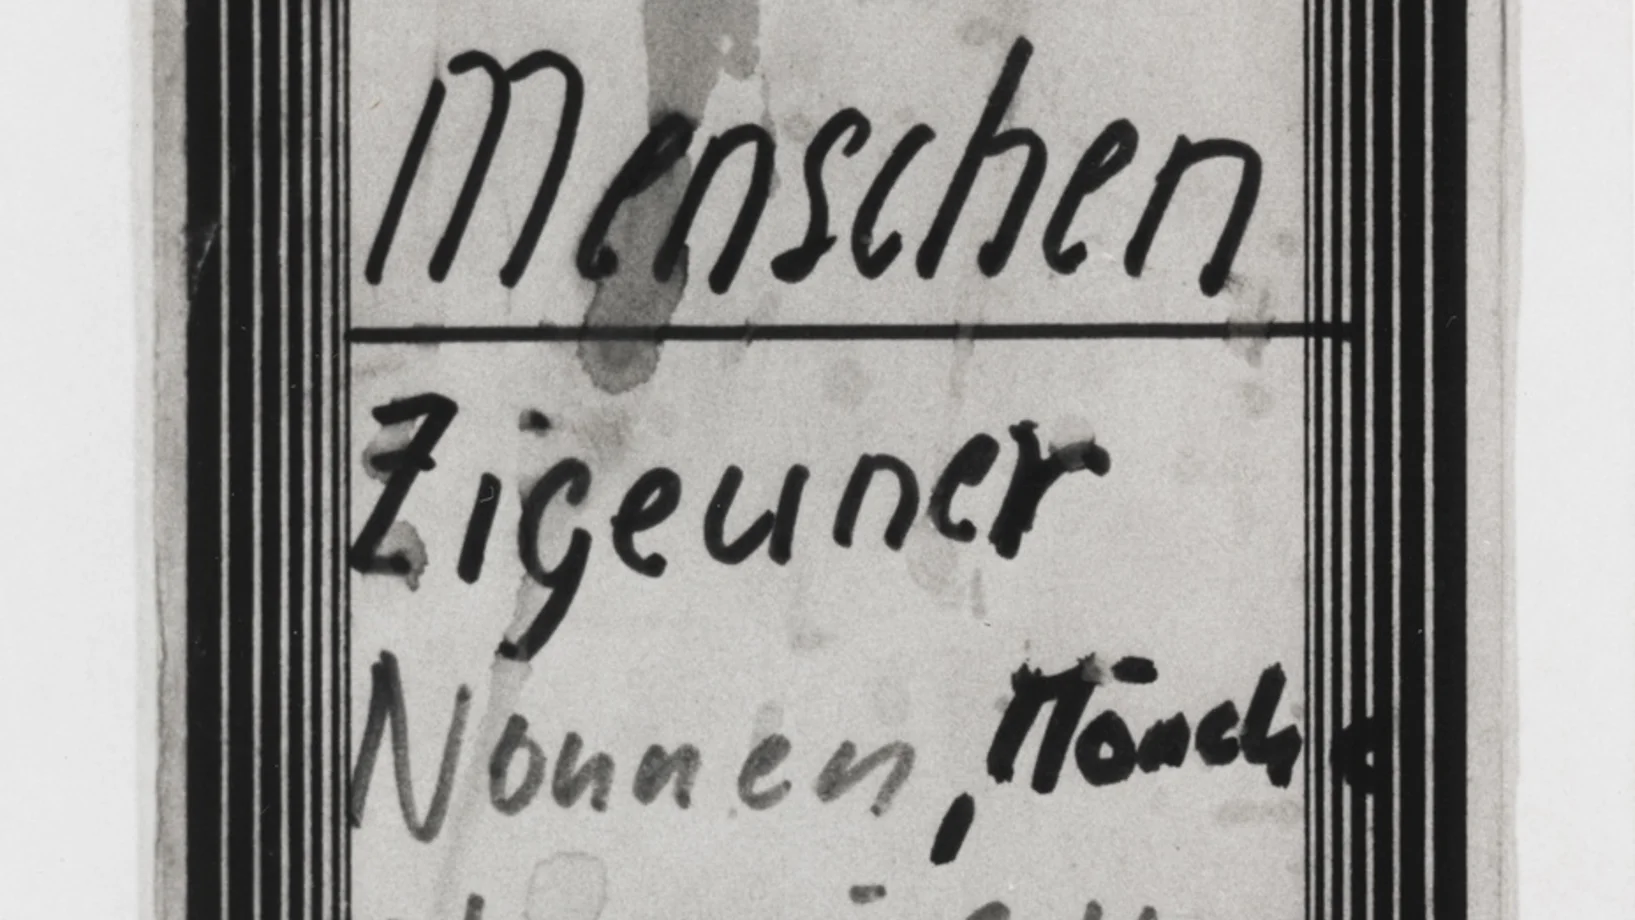 Menschen
Zigeuner
Nonnen, Mönche